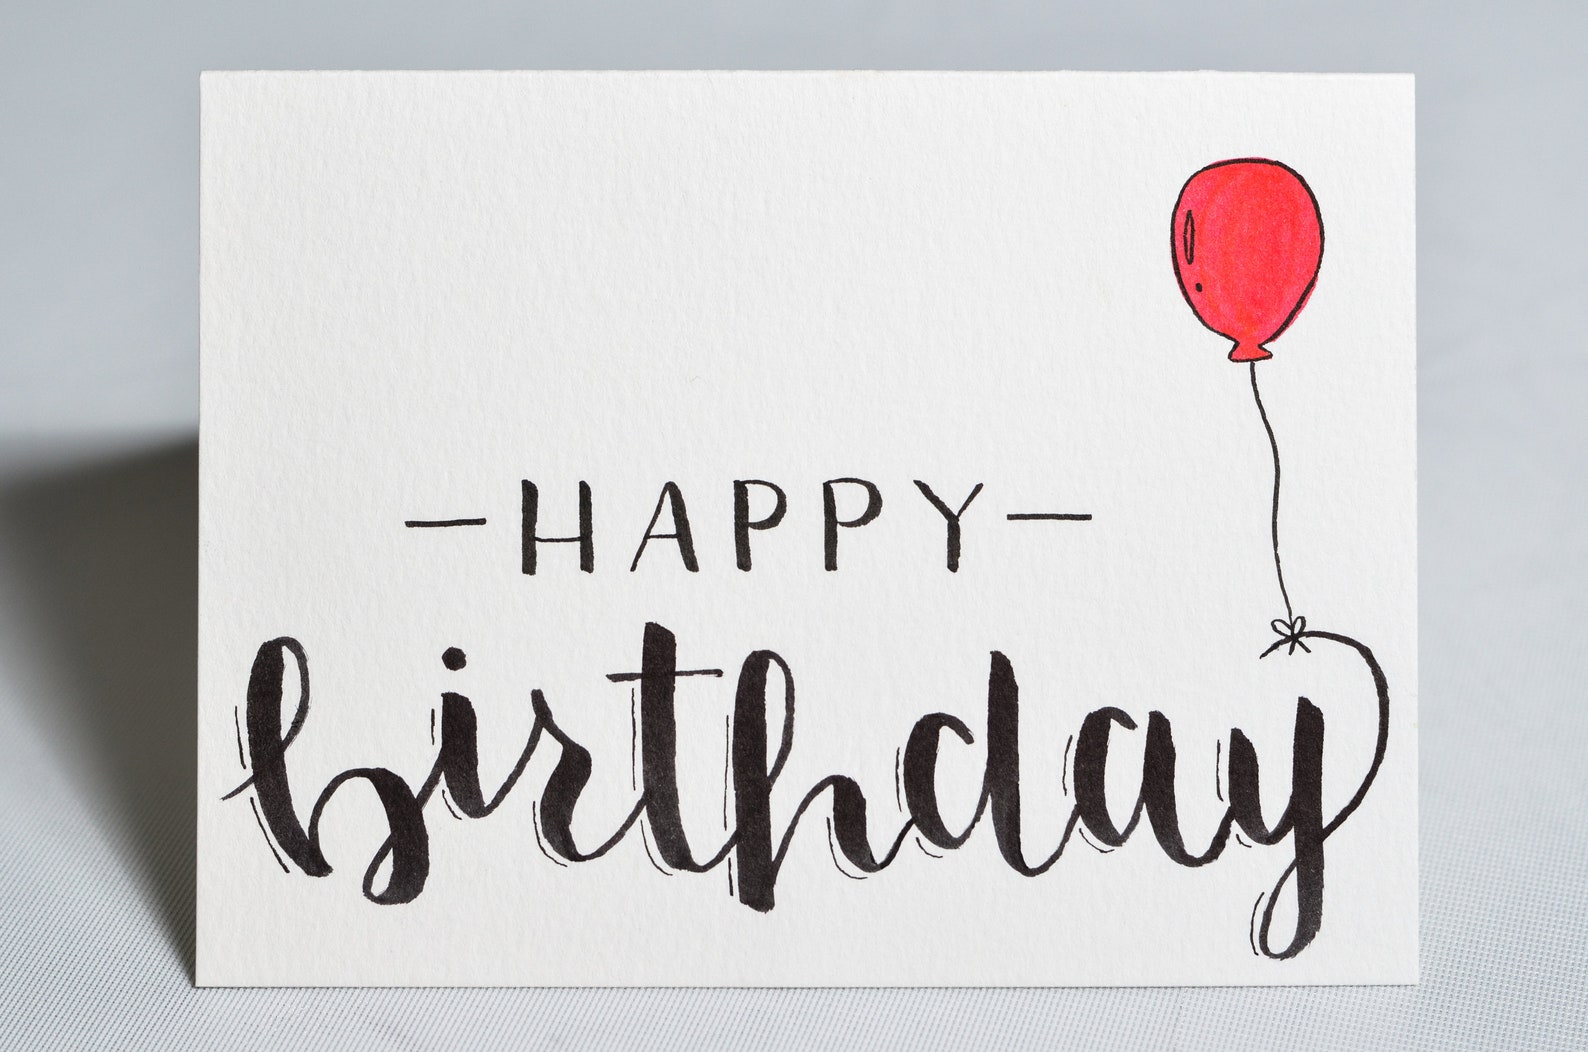 -HAPPY-
birthday